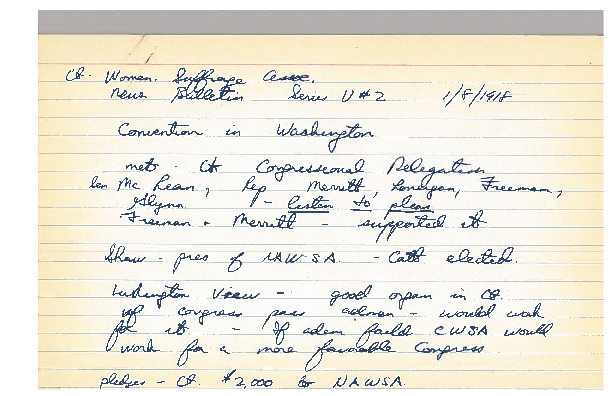 Ct. Women. Suffrage Assoc.
News Bulletin Series V #2 1/8/1918
Convention in Washington
met - Ct Congressional Delegation
Sen McLean, Rep Merritt, Lonergan, Freeman,
Glynn - listen to pleas
Freeman + Merritt - supported it
Shaw - pres of NAWSA - Catt elected.
Ludington View - good organ in Ct.
if congress pass admen - would work
for it - If adem faild CWSA would
work for a more favorable Congress
pledges - Ct. $2,000 to NAWSA.